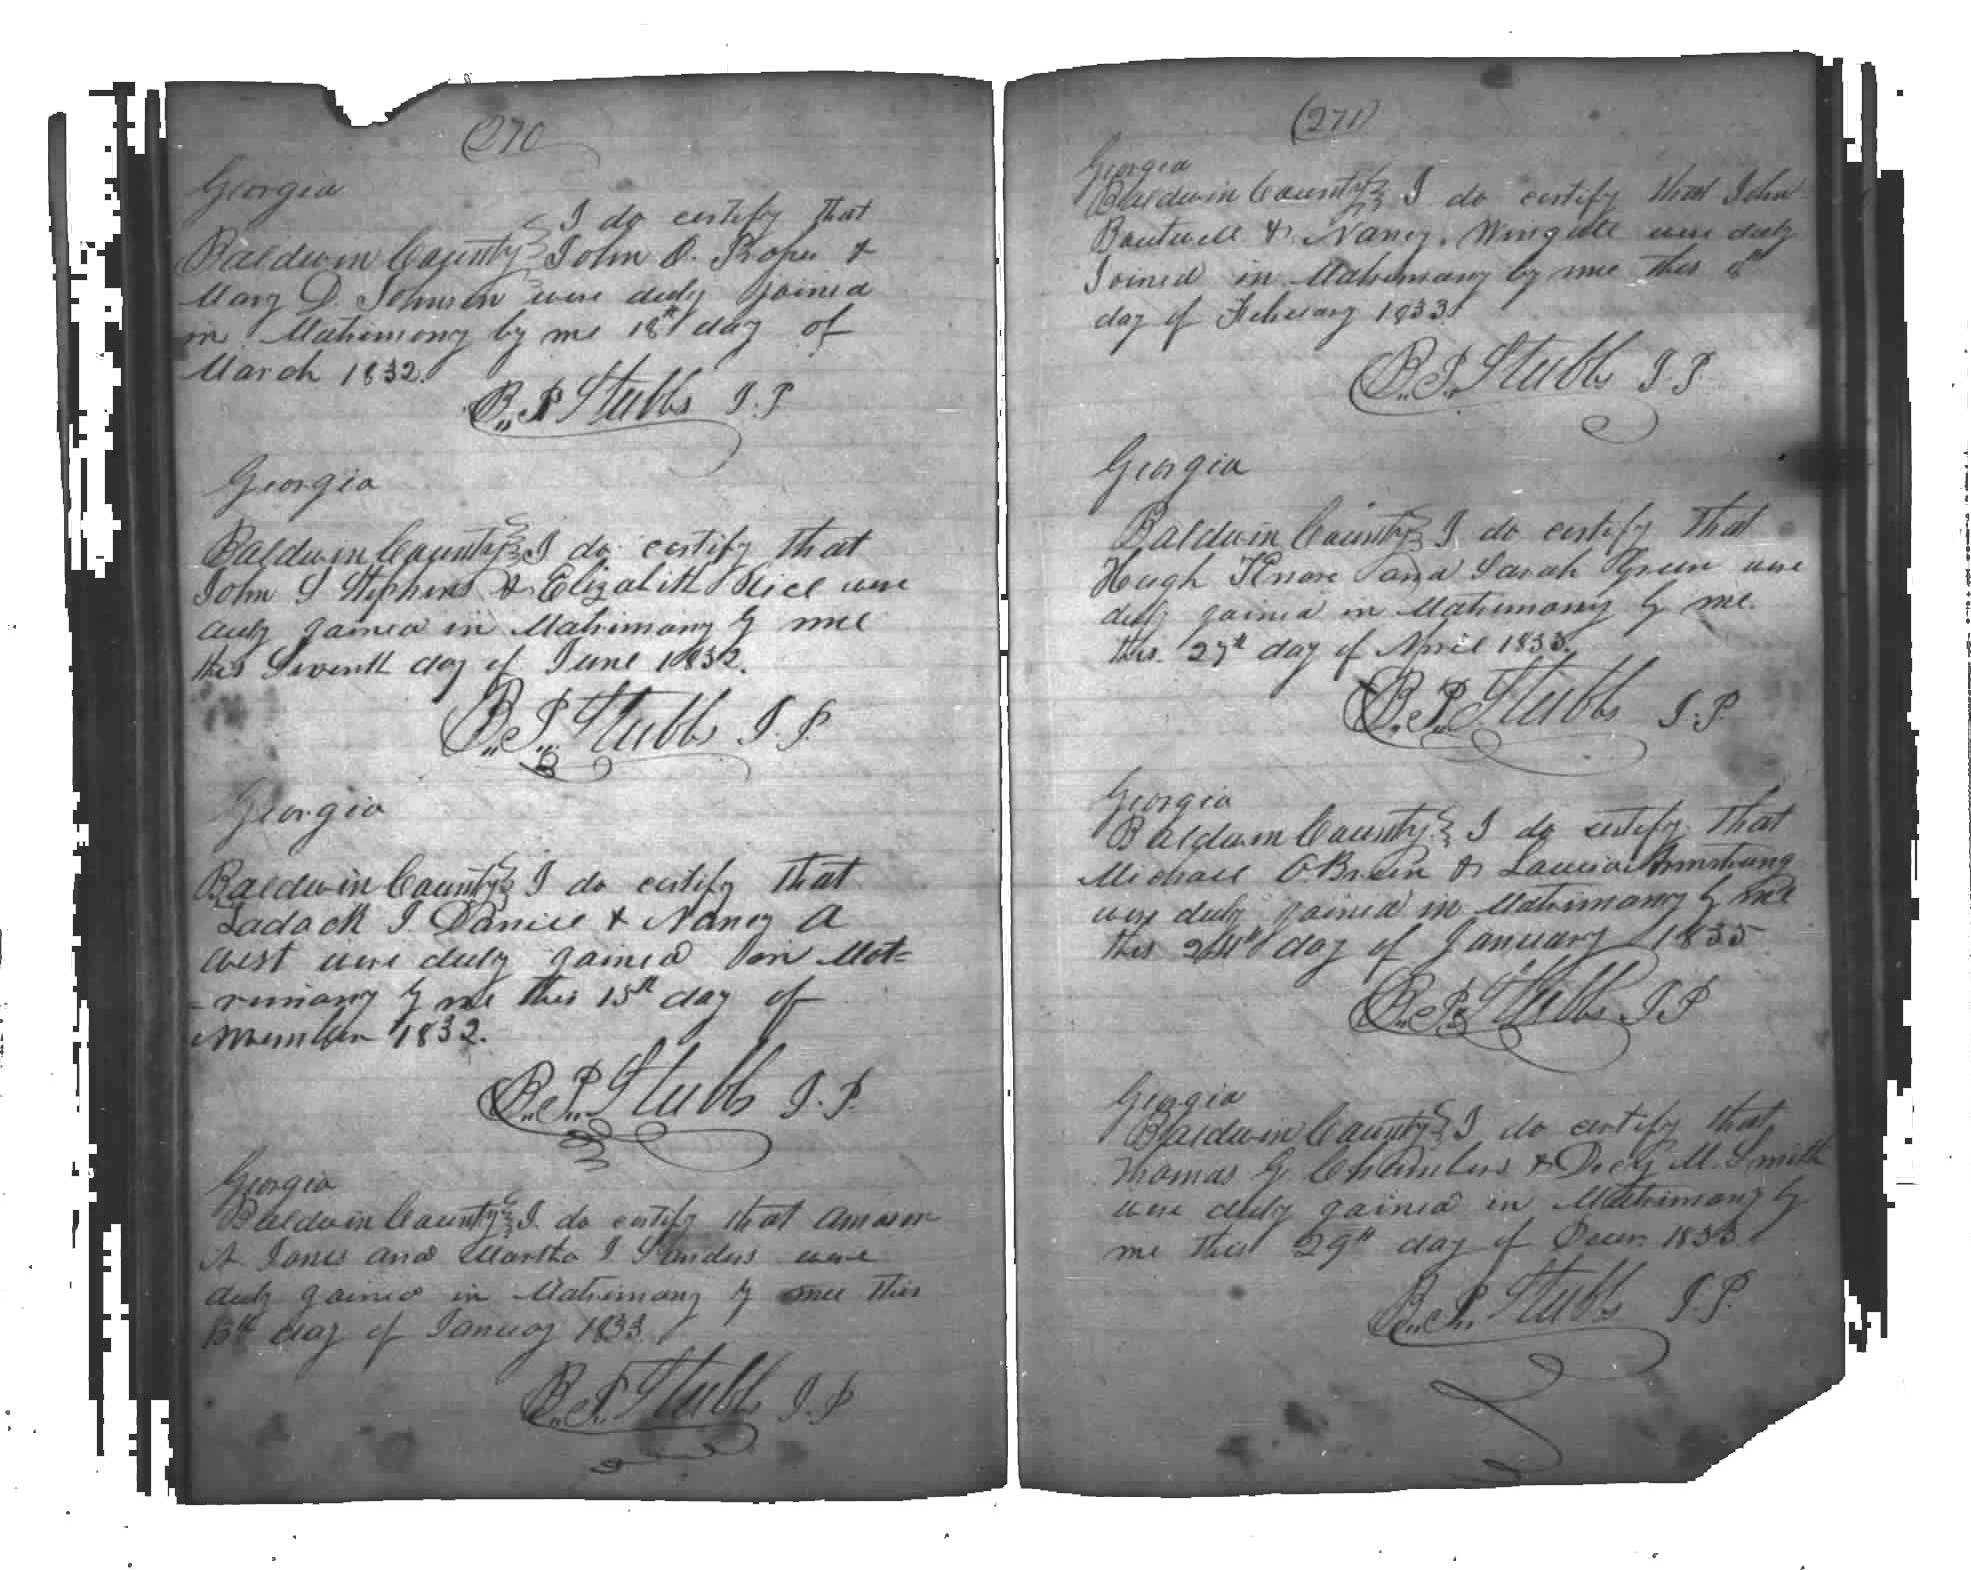 (270
Georgia
I do certify that
Baldwin County John O. Roper &
Mary D. Johnson were duly joined
in Matrimony by me 18th day of
March 1832.
B. P. Stubbs J. P.
Georgia
Baldwin County I do certify that
John S Stephens & Elizabeth Rice were
duly joined in Matrimony by me
this Seventh day of June 1832.
B. P. Stubbs J. P.
Georgia
Baldwin County I do certify that
Zadack J. Daniel & Nancy A
West were duly joined in Mat=
=rimony by me this 15th day of
November 1832.
B. P. Stubbs J. P.
Georgia
Baldwin County I do certify that
A Jones and Martha J. Sanders were
duly joined in Matrimony by me this
day of January 1833.
B. P. Stubbs J. P
(271)
Georgia
Baldwin County I do certify that John
Boutwell & Nancy Wingate were duly
Joined in Matrimony by me this
day of February 1833.
B. P. Stubbs J. P.
Georgia
Baldwin County I do certify that
Hugh and Sarah Green were
duly joined in Matrimony by me
this 27th day of April 1833.
B. P. Stubbs J. P.
Georgia
Baldwin County I do certify that
Michael O.Brien & Armstrong
were duly joined in Matrimony by me
this day of January 1835
B. P. Stubbs J P
Georgia
Baldwin County I do certify that
Thomas G. Chambers & Dicy M. Smith
were duly joined in Matrimony by
me this 29th day of Decr. 1833
B. P. Stubbs J. P.